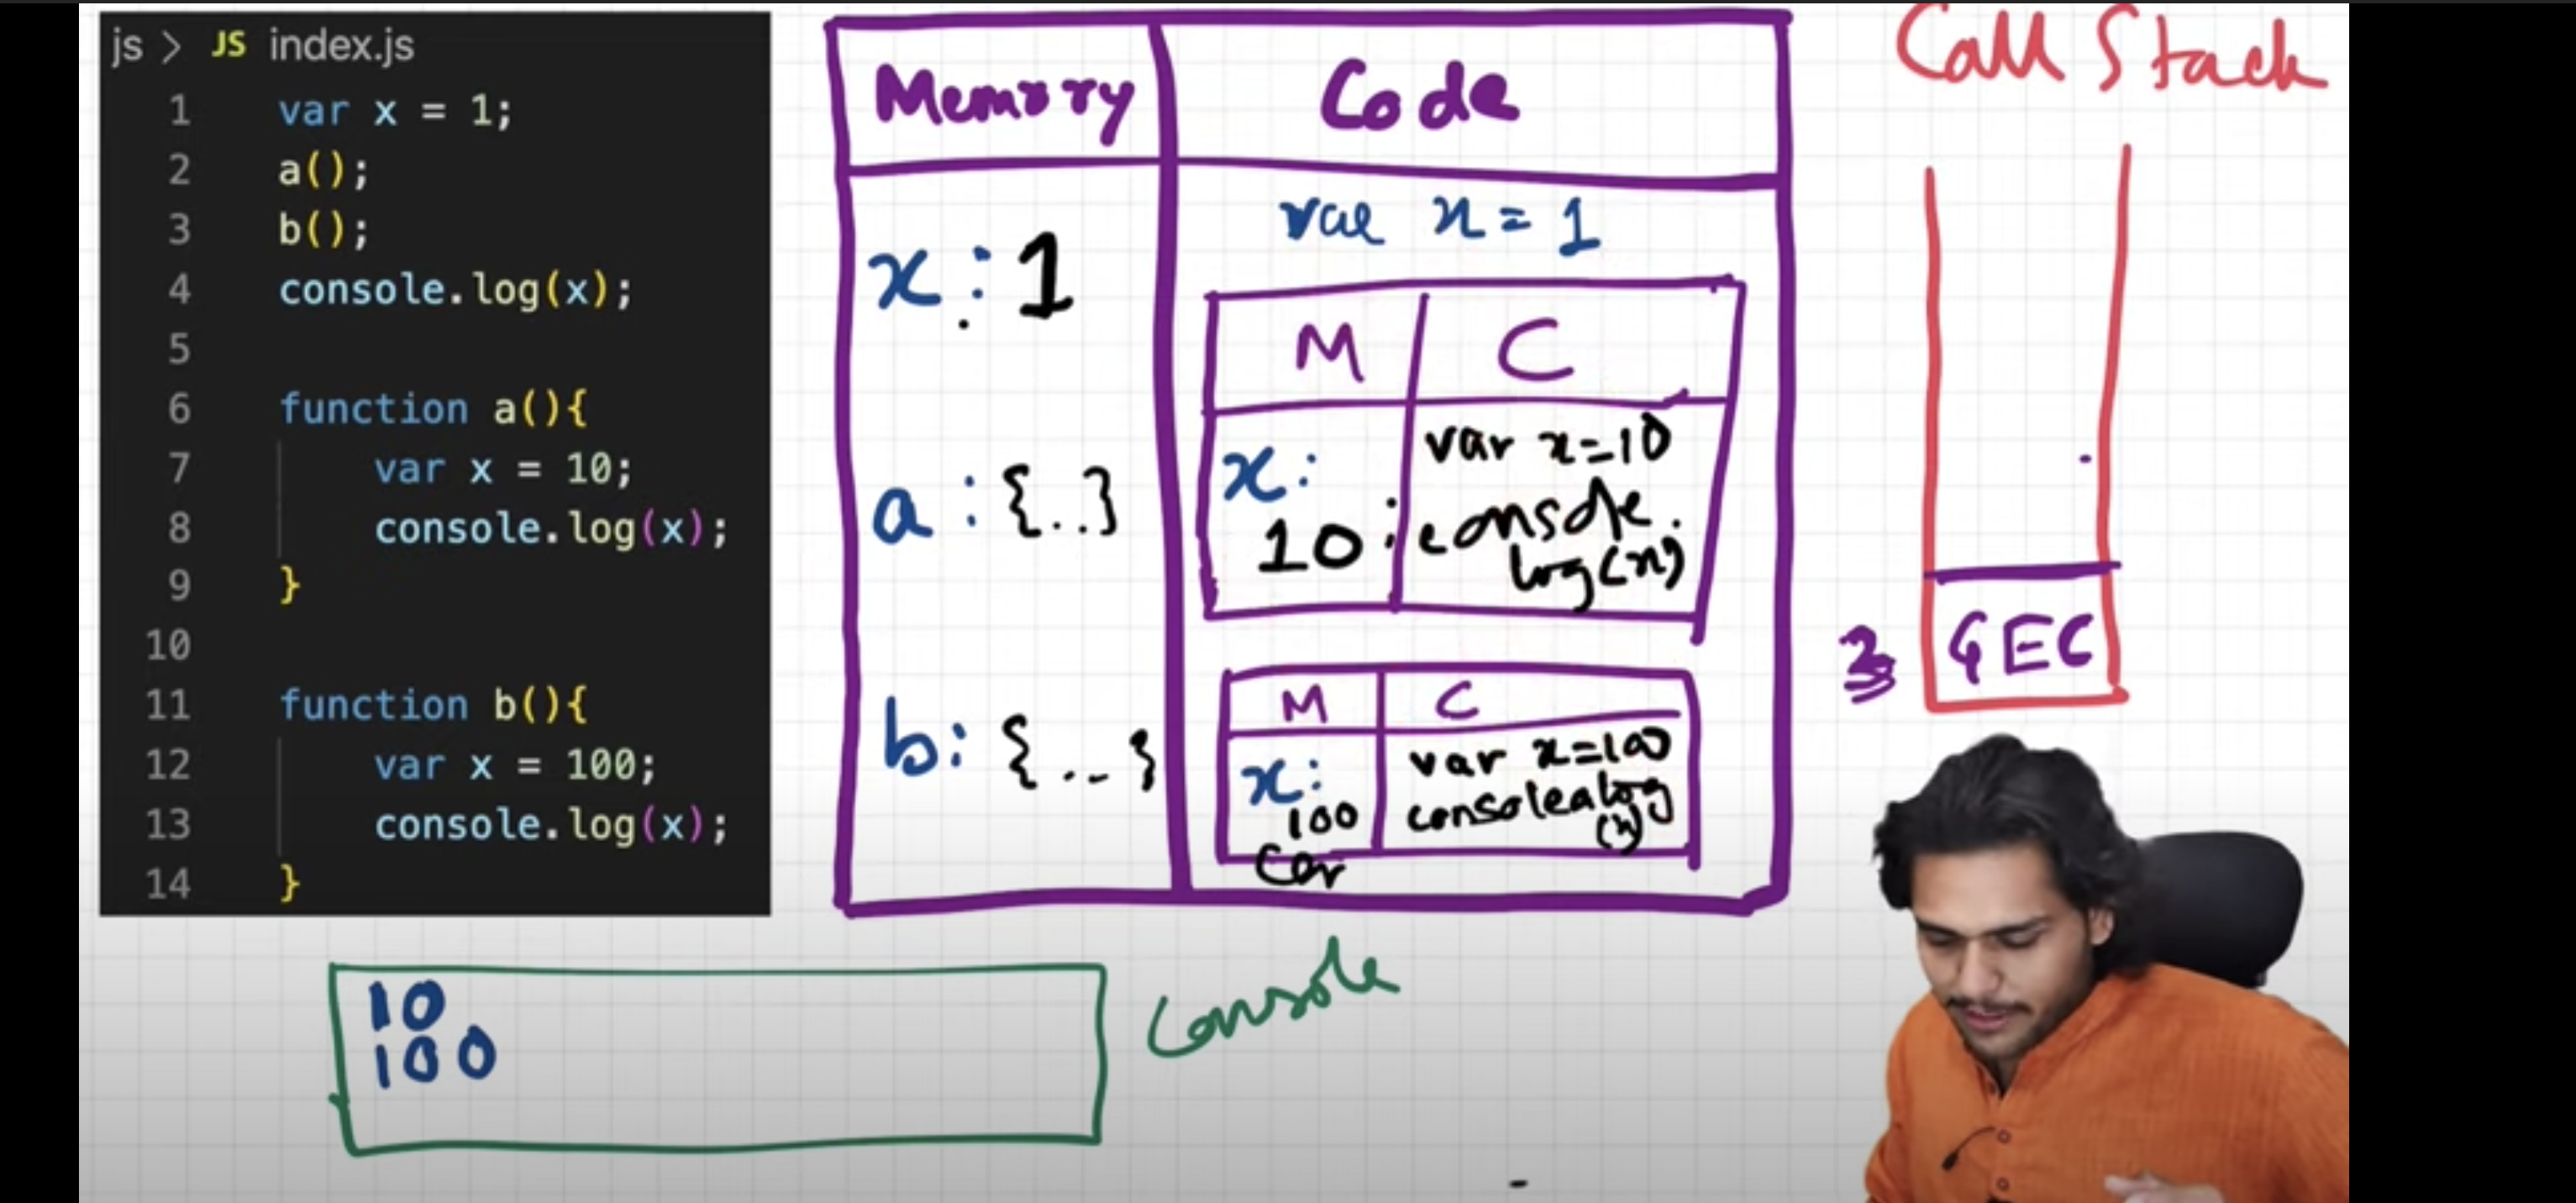 js > JS index.js
1 var x = 1;
2 a();
3 b();
4 console.log(x);
5
6 function a(){
7 var x = 10;
8 console.log(x);
9 }
10
11 function b(){
12 var x = 100;
13 console.log(x);
14 }
Memory Code
x : 1
a : {..}
b : {...}
var x = 1
M C
x:
10
var x=10
console.
log(x)
M C
x:
100
var x=100
console.log
(x)
Call Stack
3
GEC
10
100
Console